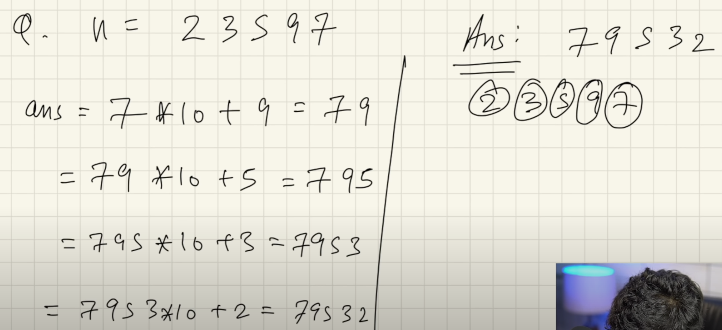 Q. n = 23597
ans = 7*10 + 9 = 79
= 79 *10 + 5 = 795
= 795 *10 + 3 = 7953
= 7953*10 + 2 = 79532
Ans: 79532
2 3 5 9 7